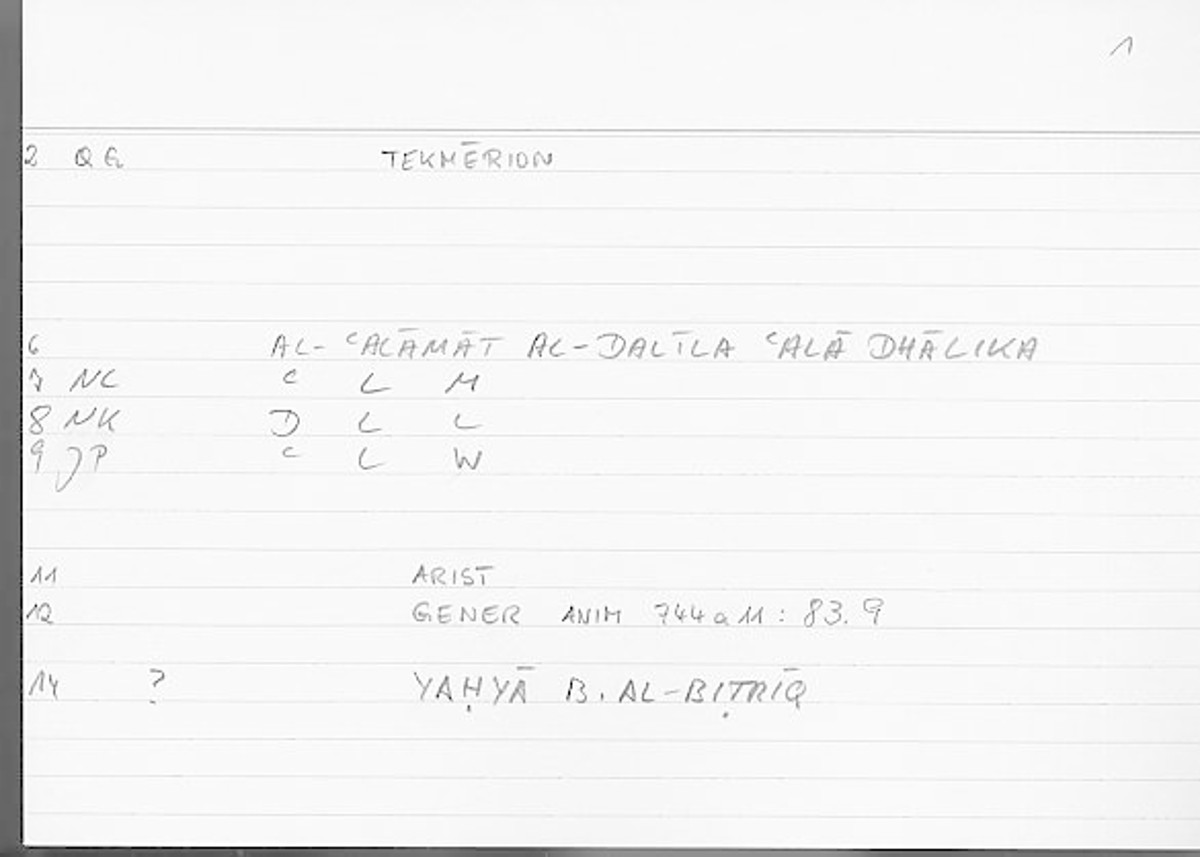 1
2 QG TEKMĒRION
6 AL-ʿALĀMĀT AL-DALĪLA ʿALĀ DHĀLIKA
7 NC ʿ L M
8 NK D L L
9 JP ʿ L W
11 ARIST
12 GENER ANIM 744a11: 83.9
14 ? YAḤYĀ B. AL-BIṬRĪQ